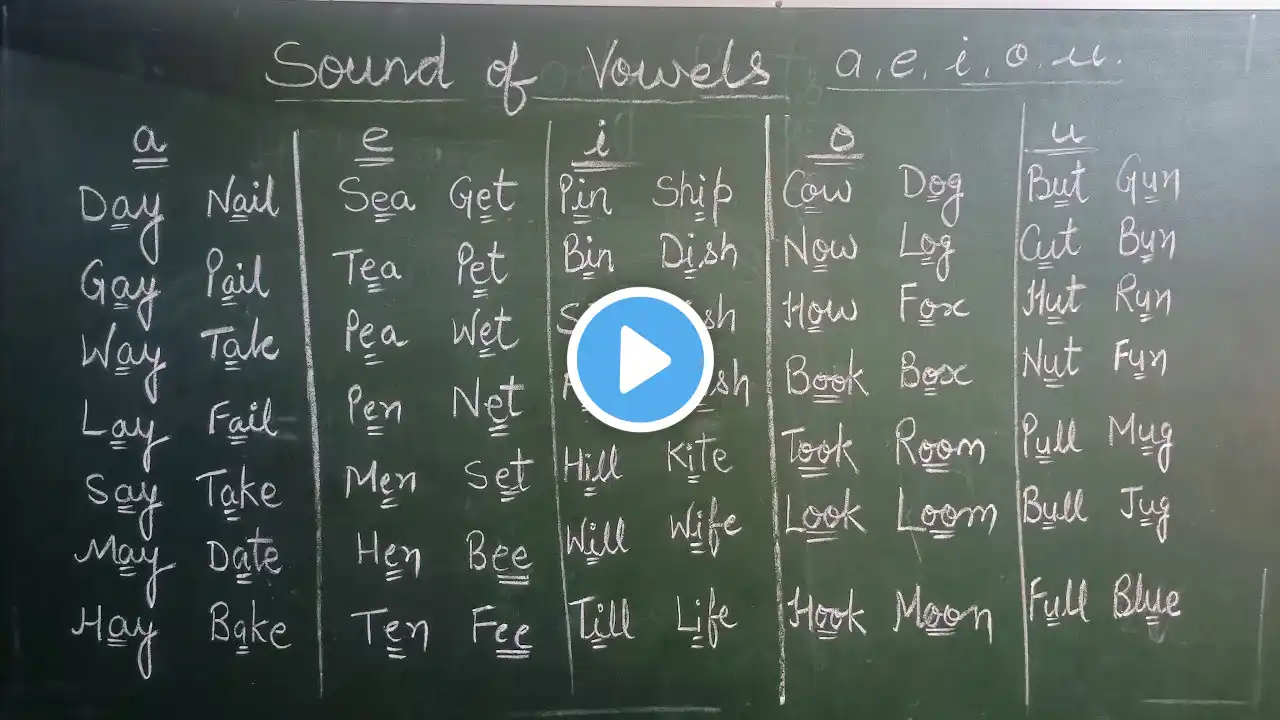 Sound of Vowels a, e, i, o, u.
a e i o u
Day Nail Sea Get Pin Ship Cow Dog But Gun
Gay Pail Tea Pet Bin Dish Now Log Cut Bun
Way Take Pea Wet How Fox Hut Run
Lay Fail Pen Net Book Box Nut Fun
Say Take Men Set Hill Kite Took Room Pull Mug
May Date Hen Bee Will Wife Look Loom Bull Jug
Hay Bake Ten Fee Till Life Hook Moon Full Blue